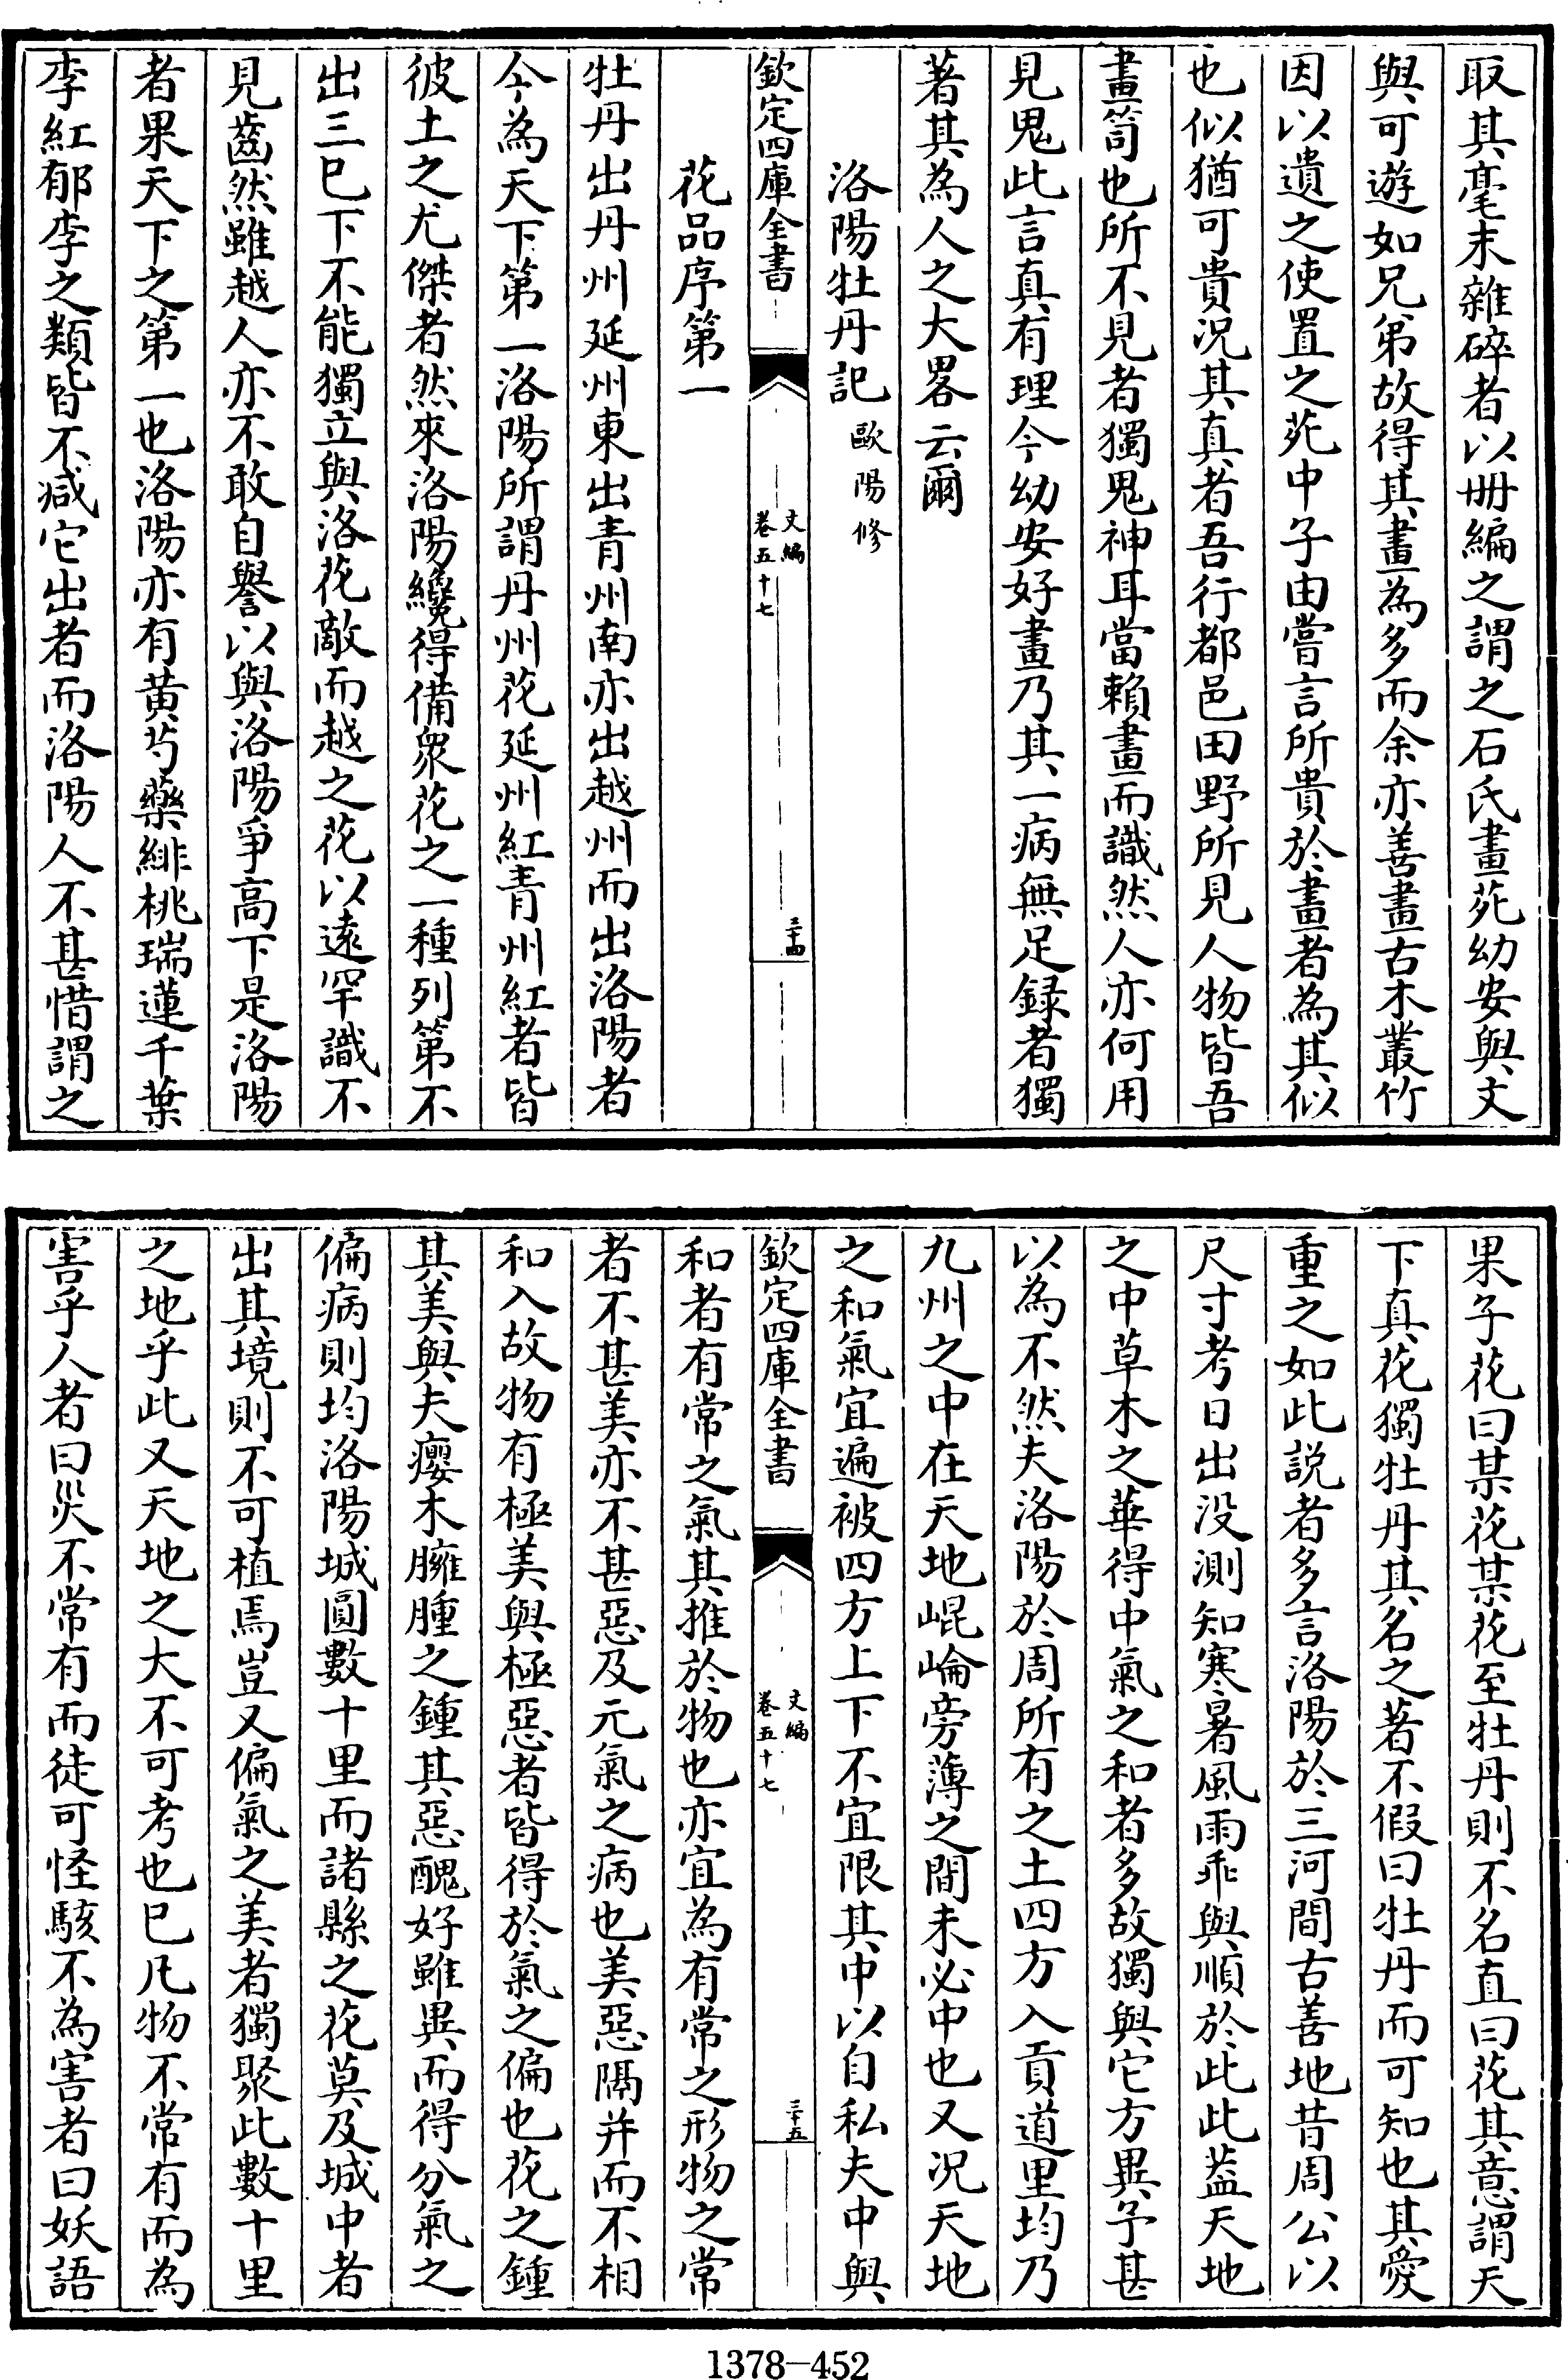 取其毫末雜碎者以册編之謂之石氏畫苑幼安與文
與可遊如兄弟故得其畫為多而余亦善畫古木叢竹
因以遺之使置之苑中子由嘗言所貴於畫者為其似
也似猶可貴况其真者吾行都邑田野所見人物皆吾
畫笥也所不見者獨鬼神耳當賴畫而識然人亦何用
見鬼此言真有理今幼安好畫乃其一病無足録者獨
著其為人之大畧云爾
洛陽牡丹記 歐陽修
欽定四庫全書 文編 卷五十七 三十四
花品序第一
牡丹出丹州延州東出青州南亦出越州而出洛陽者
今為天下第一洛陽所謂丹州花延州紅青州紅者皆
彼土之尤傑者然來洛陽纔得備衆花之一種列第不
出三已下不能獨立與洛花敵而越之花以遠罕識不
見齒然雖越人亦不敢自譽以與洛陽爭高下是洛陽
者果天下之第一也洛陽亦有黄芍藥緋桃瑞蓮千葉
李紅郁李之類皆不减它出者而洛陽人不甚惜謂之
果子花曰某花某花至牡丹則不名直曰花其意謂天
下真花獨牡丹其名之著不假曰牡丹而可知也其愛
重之如此説者多言洛陽於三河間古善地昔周公以
尺寸考日出没測知寒暑風雨乖與順於此此葢天地
之中草木之華得中氣之和者多故獨與它方異予甚
以為不然夫洛陽於周所有之土四方入貢道里均乃
九州之中在天地崐崘旁薄之間未必中也又况天地
之和氣宜遍被四方上下不宜限其中以自私夫中與
欽定四庫全書 文編 卷五十七 三十五
和者有常之氣其推於物也亦宜為有常之形物之常
者不甚美亦不甚惡及元氣之病也美惡隔并而不相
和入故物有極美與極惡者皆得於氣之偏也花之鍾
其美與夫癭木臃腫之鍾其惡醜好雖異而得分氣之
偏病則均洛陽城圓數十里而諸縣之花莫及城中者
出其境則不可植焉豈又偏氣之美者獨聚此數十里
之地乎此又天地之大不可考也已凡物不常有而為
害乎人者曰災不常有而徒可怪駭不為害者曰妖語
1378—452